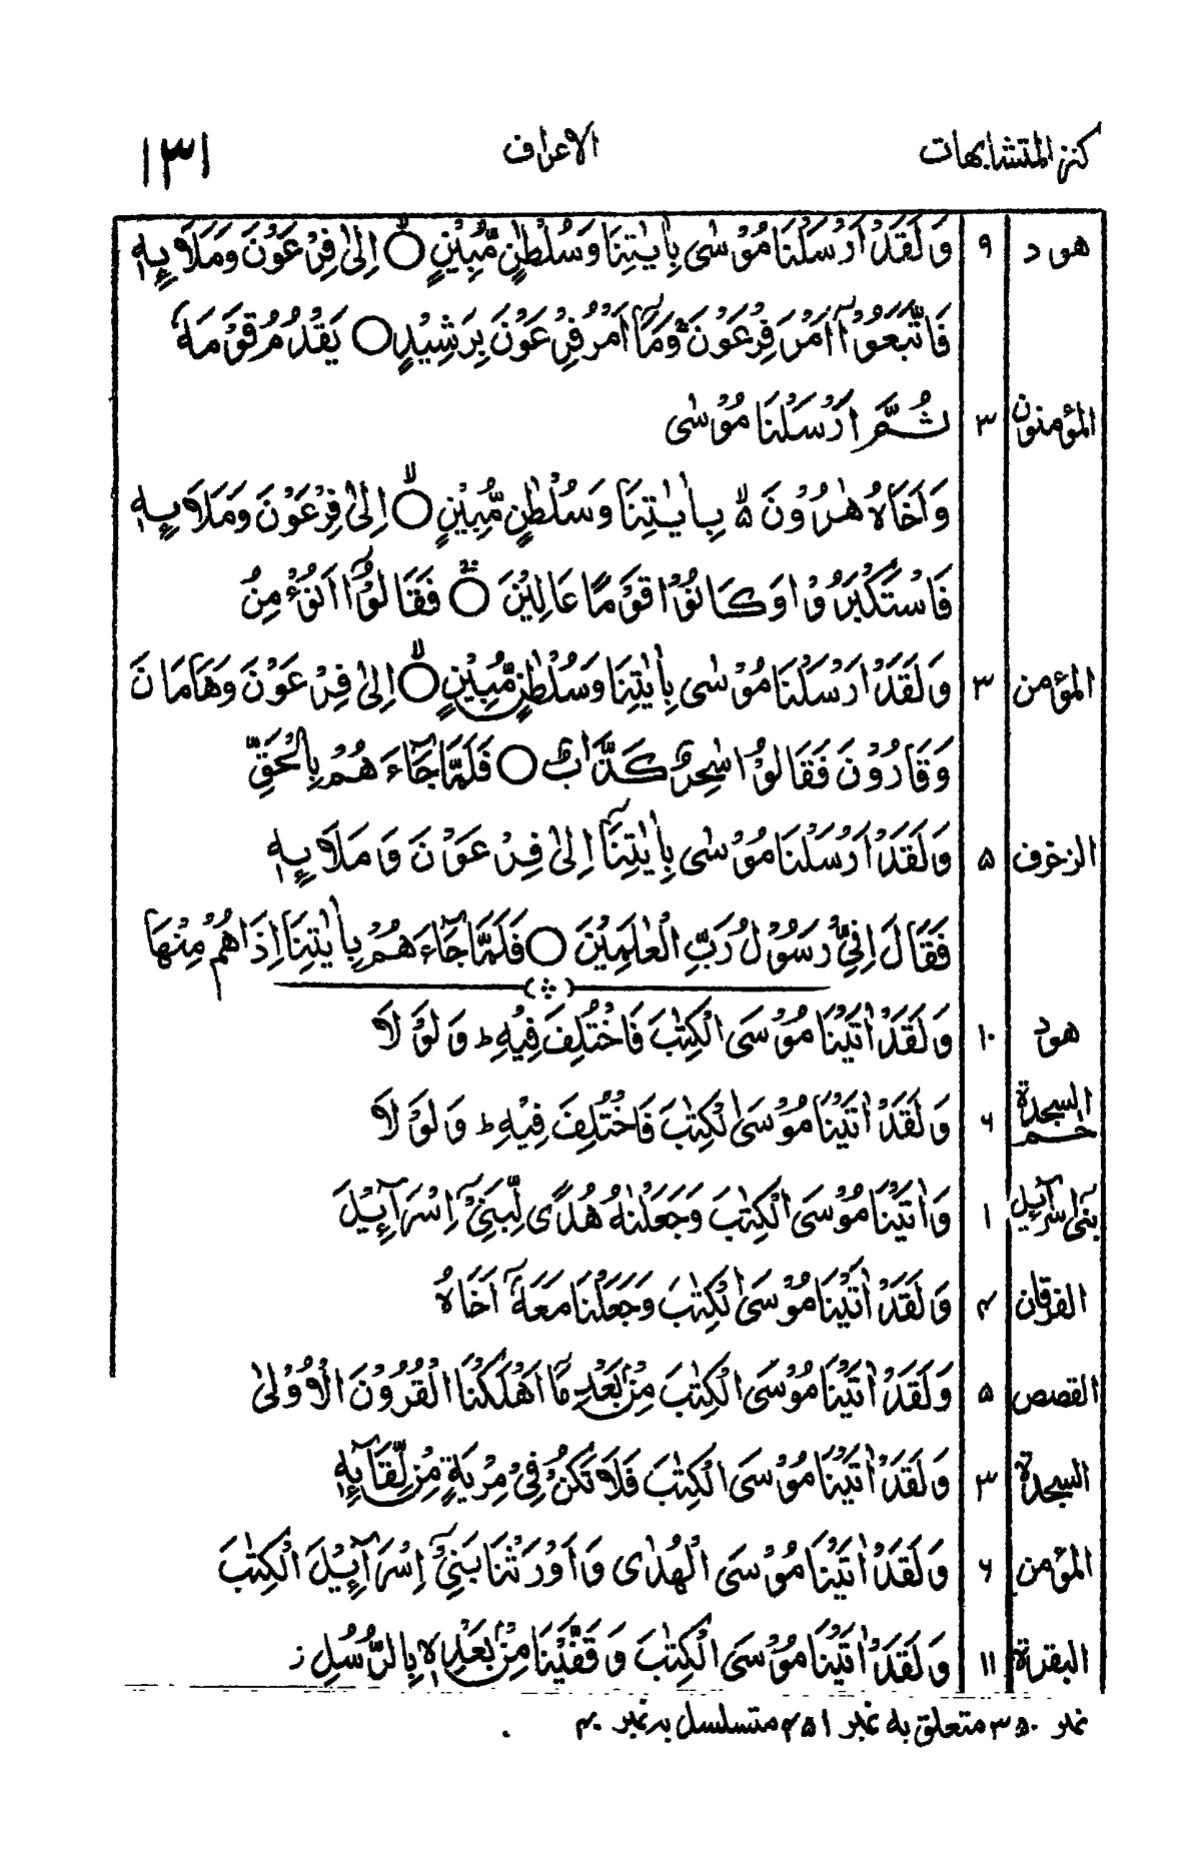 كنز المتشابهات الاعراف ۱۳۱
هود ۹ وَلَقَدْ اَرْسَلْنَا مُوْسٰى بِاٰيٰتِنَا وَسُلْطٰنٍ مُّبِيْنٍ ۙ اِلٰى فِرْعَوْنَ وَمَلَا۟ىِٕهٖ
فَاتَّبَعُوْٓا اَمْرَ فِرْعَوْنَ ۚ وَمَآ اَمْرُ فِرْعَوْنَ بِرَشِيْدٍ ○ يَقْدُمُ قَوْمَهٗ
المؤمنون ۳ ثُمَّ اَرْسَلْنَا مُوْسٰى
وَاَخَاهُ هٰرُوْنَ ۙ۵ بِاٰيٰتِنَا وَسُلْطٰنٍ مُّبِيْنٍ ۙ اِلٰى فِرْعَوْنَ وَمَلَا۟ىِٕهٖ
فَاسْتَكْبَرُوْا وَكَانُوْا قَوْمًا عَالِيْنَ ○ۚ فَقَالُوْٓا اَنُؤْمِنُ
المؤمن ۳ وَلَقَدْ اَرْسَلْنَا مُوْسٰى بِاٰيٰتِنَا وَسُلْطٰنٍ مُّبِيْنٍ ۙ اِلٰى فِرْعَوْنَ وَهَامَانَ
وَقَارُوْنَ فَقَالُوْا سٰحِرٌ كَذَّابٌ ○ فَلَمَّا جَآءَهُمْ بِالْحَقِّ
الزخرف ۵ وَلَقَدْ اَرْسَلْنَا مُوْسٰى بِاٰيٰتِنَآ اِلٰى فِرْعَوْنَ وَمَلَا۟ىِٕهٖ
فَقَالَ اِنِّيْ رَسُوْلُ رَبِّ الْعٰلَمِيْنَ ○ فَلَمَّا جَآءَهُمْ بِاٰيٰتِنَآ اِذَا هُمْ مِنْهَا
هود ۱۰ وَلَقَدْ اٰتَيْنَا مُوْسَى الْكِتٰبَ فَاخْتُلِفَ فِيْهِ ؕ وَلَوْ لَا
السجدة حٰم ۶ وَلَقَدْ اٰتَيْنَا مُوْسَى الْكِتٰبَ فَاخْتُلِفَ فِيْهِ ؕ وَلَوْ لَا
بنی اسرآئیل ۱ وَاٰتَيْنَا مُوْسَى الْكِتٰبَ وَجَعَلْنٰهُ هُدًى لِّبَنِيْٓ اِسْرَآءِيْلَ
الفرقان ۴ وَلَقَدْ اٰتَيْنَا مُوْسَى الْكِتٰبَ وَجَعَلْنَا مَعَهٗٓ اَخَاهُ
القصص ۵ وَلَقَدْ اٰتَيْنَا مُوْسَى الْكِتٰبَ مِنْۢ بَعْدِ مَآ اَهْلَكْنَا الْقُرُوْنَ الْاُوْلٰى
السجدة ۳ وَلَقَدْ اٰتَيْنَا مُوْسَى الْكِتٰبَ فَلَا تَكُنْ فِيْ مِرْيَةٍ مِّنْ لِّقَآىِٕهٖ
المؤمن ۶ وَلَقَدْ اٰتَيْنَا مُوْسَى الْهُدٰى وَاَوْرَثْنَا بَنِيْٓ اِسْرَآءِيْلَ الْكِتٰبَ
البقرة ۱۱ وَلَقَدْ اٰتَيْنَا مُوْسَى الْكِتٰبَ وَقَفَّيْنَا مِنْۢ بَعْدِهٖ بِالرُّسُلِ ز
نمبر ۳۵۰ متعلق به نمبر ۴۵۱ متسلسل بر نمبر ۴۰